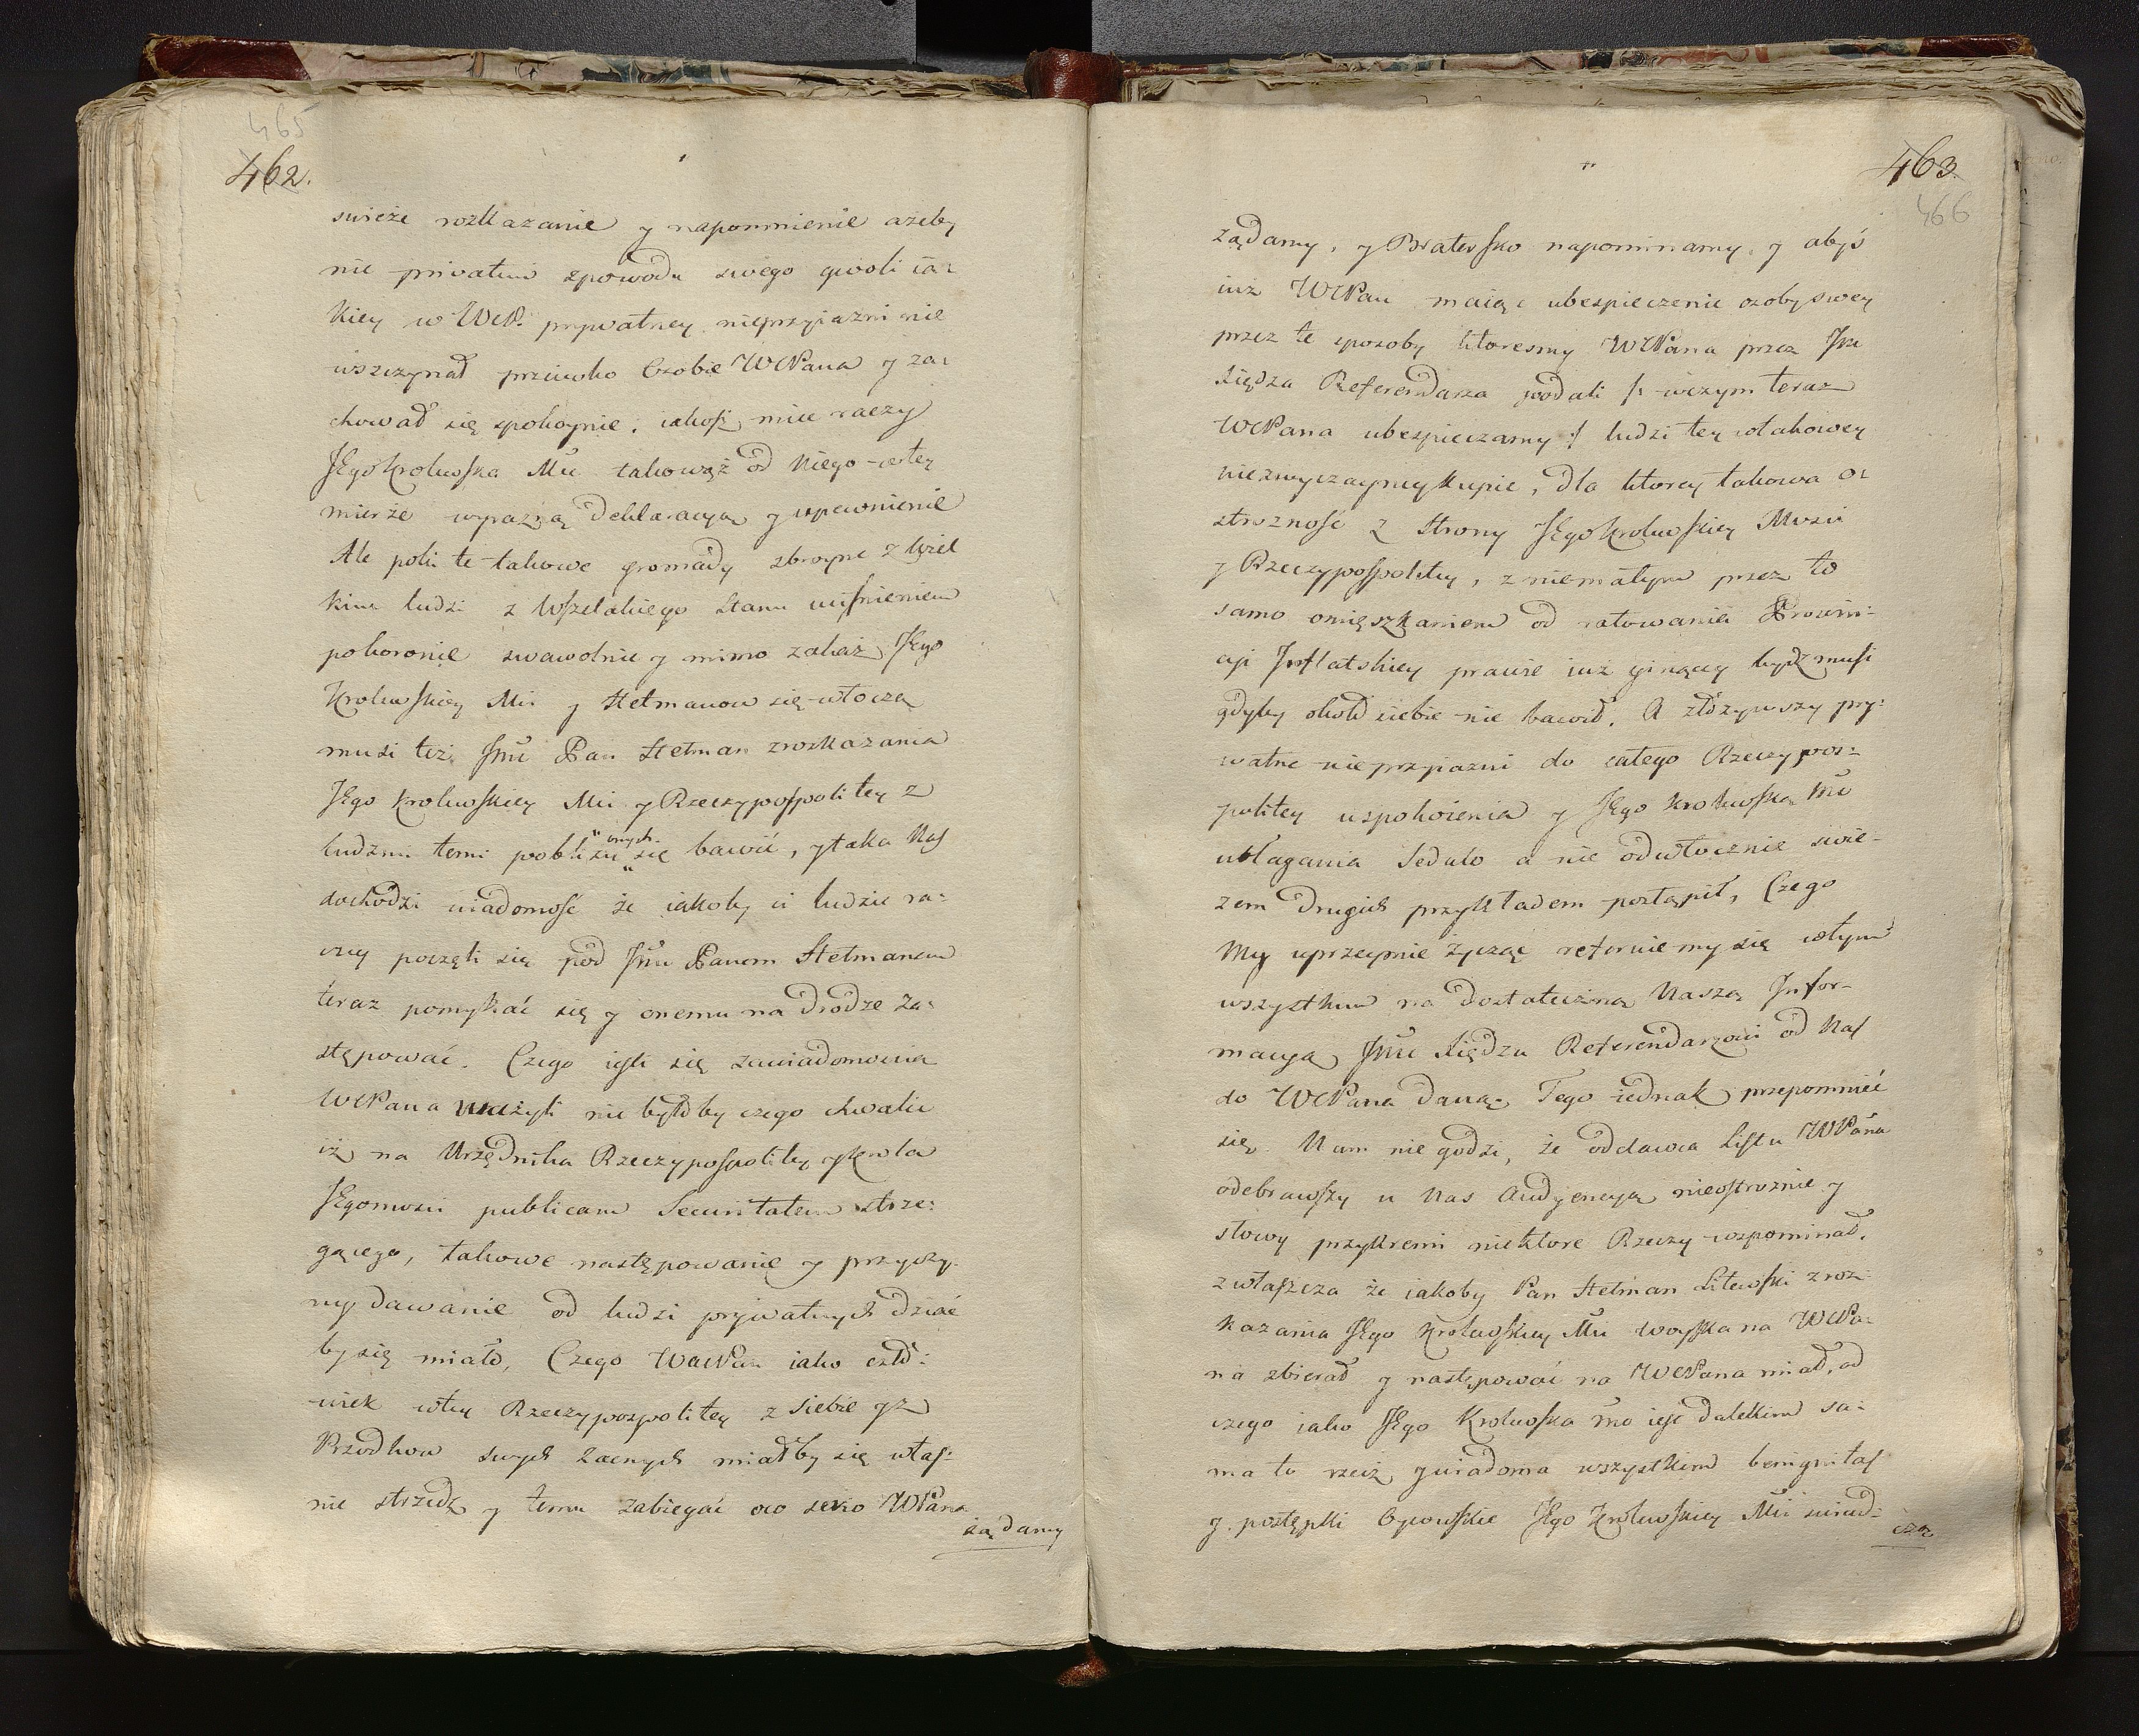 465
462.
swieże rozkazanie y napomnienie ażeby
nie privatim zpowodu swego gwoli ia:
kiey w WM. prywatney nieprzyiazni nie
wszczynał przeciwko Osobie WMPana y za:
chował się spokoynie, iakosz mieć raczy
JEgo Krolewska Mć takowąż od Niego wtey
mierze wyrazną Deklaracyą y upewnienie
Ale poki te takowe gromady zbroyne z lqiel
kim ludzi z Wszelakiego Stanu uciśnieniem
pokoronie swawolnie y mimo zakaz JEgo
Krolewskiey Mći y Hetmanow się włoczą
musi też Jmć Pan Hetman zrozkazania
JEgo Krolewskiey Mći y Rzeczypospolitey z
ludzmi temi poblizu onych się bawić, y taka Nas
dochodzi wiadomość że iakoby ci ludzie ra:
czey poczęli się pod Jmć Panem Hetmanem
teraz pomykać się y onemu na Drodze za:
stępować. Czego iesli się zawiadomienia
WMPana ważyli nie byłoby czego chwalić
iż na Urzędnika Rzeczypospolitey y Krola
JEgomości publicam Securitatem strze:
gącego, takowe następowanie y przyczy:
ny dawanie od ludzi prywatnych dziać
by się miało, Czego WaMPan iako czło:
wiek wtey Rzeczypospolitey z siebie y z
Przodkow swych Zacnych miałby się właś:
nie strzedz y temu zabiegać oco serio WMPana
żądamy
463
466
żądamy, y Bratersko napominamy, y abyś
iuż WMPan maiąc ubespieczenie osoby swey
przez te sposoby ktoresmy WMPana przez Jm
Xiędza Referendarza podali /: wczym teraz
WMPana ubespieczamy :/ ludzi tey wtakowey
niezwyczayney kupie, dla ktorey takowa o:
strożność z Strony JEgo Krolewskiey Mości
y Rzeczypospolitey, z niemałym przez to
samo omięszkaniem od ratowania Prowin:
cyi Inflatskiey prawie iuż ginącey bydź musi
gdyby około siebie nie bawił. A złożywszy pry:
watne nieprzyiazni do całego Rzeczypos:
politey uspokoienia y JEgo Krolewską Mć
ubłagania Sedulo a nie odwłocznie swie-
zem Drugich przykładem postąpił, Czego
My uprzeymie życząc referuiemy się wtym
wszystkim na Dostateczną Naszą Infor-
macyą Jmć Xiędzu Referendarzowi od Nas
do WMPana daną. Tego iednak przepomnieć
się Nam nie godzi, że oddawca Listu WMPana
odebrawszy u Nas Audyencyą nieostrożnie y
słowy przykremi niektore Rzeczy wspominał,
zwłaszcza że iakoby Pan Hetman Litewski zroz:
kazania JEgo Krolewskiey Mći woyska na WMPa:
na zbierał y następować na WMPana miał, od
czego iako JEgo Krolewska Mć iest dalekim sa:
ma to rzecz y wiadoma wszystkim benignitas
y postępki Oycowskie JEgo Krolewskiey Mći swiad:
czą